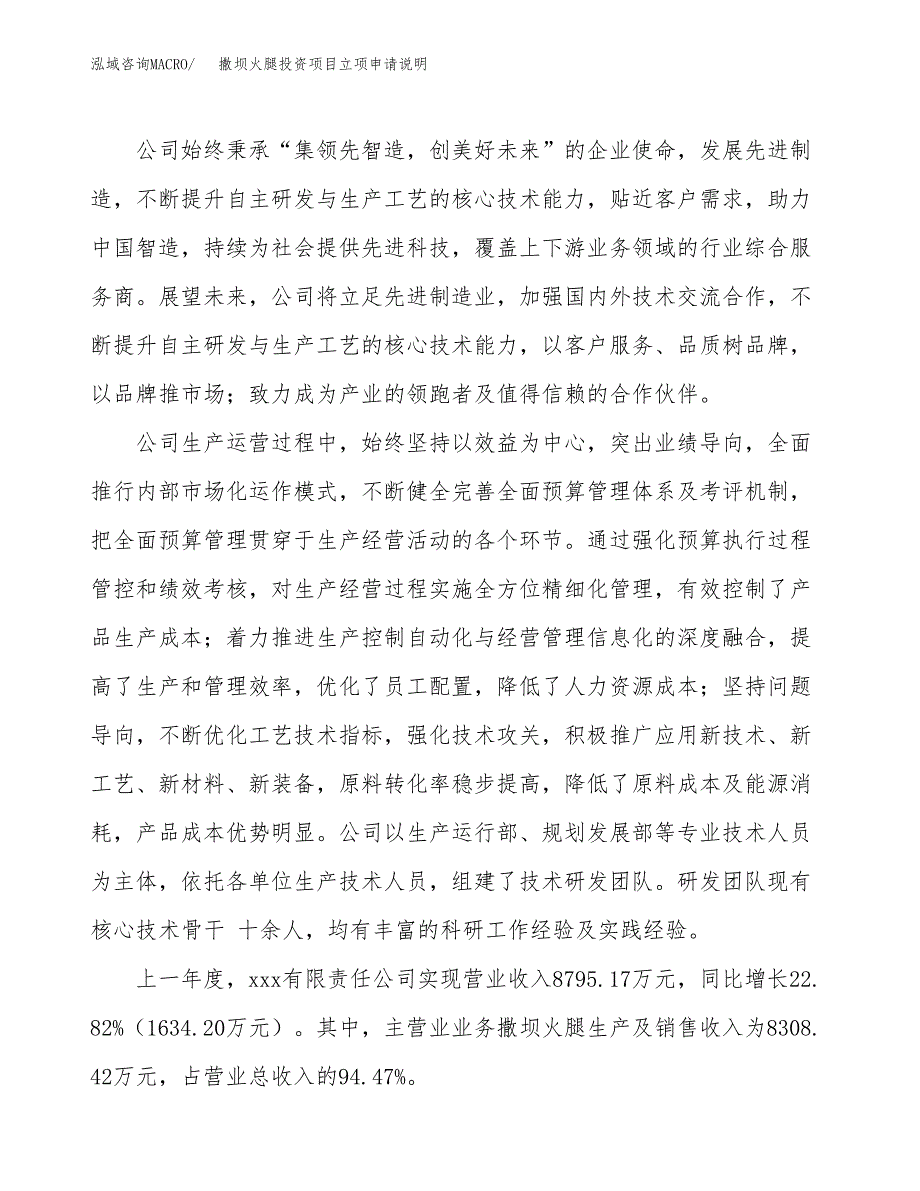 泓域咨询MACRO/ 撒坝火腿投资项目立项申请说明
公司始终秉承“集领先智造，创美好未来”的企业使命，发展先进制
造，不断提升自主研发与生产工艺的核心技术能力，贴近客户需求，助力
中国智造，持续为社会提供先进科技，覆盖上下游业务领域的行业综合服
务商。展望未来，公司将立足先进制造业，加强国内外技术交流合作，不
断提升自主研发与生产工艺的核心技术能力，以客户服务、品质树品牌，
以品牌推市场；致力成为产业的领跑者及值得信赖的合作伙伴。
公司生产运营过程中，始终坚持以效益为中心，突出业绩导向，全面
推行内部市场化运作模式，不断健全完善全面预算管理体系及考评机制，
把全面预算管理贯穿于生产经营活动的各个环节。通过强化预算执行过程
管控和绩效考核，对生产经营过程实施全方位精细化管理，有效控制了产
品生产成本；着力推进生产控制自动化与经营管理信息化的深度融合，提
高了生产和管理效率，优化了员工配置，降低了人力资源成本；坚持问题
导向，不断优化工艺技术指标，强化技术攻关，积极推广应用新技术、新
工艺、新材料、新装备，原料转化率稳步提高，降低了原料成本及能源消
耗，产品成本优势明显。公司以生产运行部、规划发展部等专业技术人员
为主体，依托各单位生产技术人员，组建了技术研发团队。研发团队现有
核心技术骨干 十余人，均有丰富的科研工作经验及实践经验。
上一年度，xxx有限责任公司实现营业收入8795.17万元，同比增长22.
82%（1634.20万元）。其中，主营业业务撒坝火腿生产及销售收入为8308.
42万元，占营业总收入的94.47%。